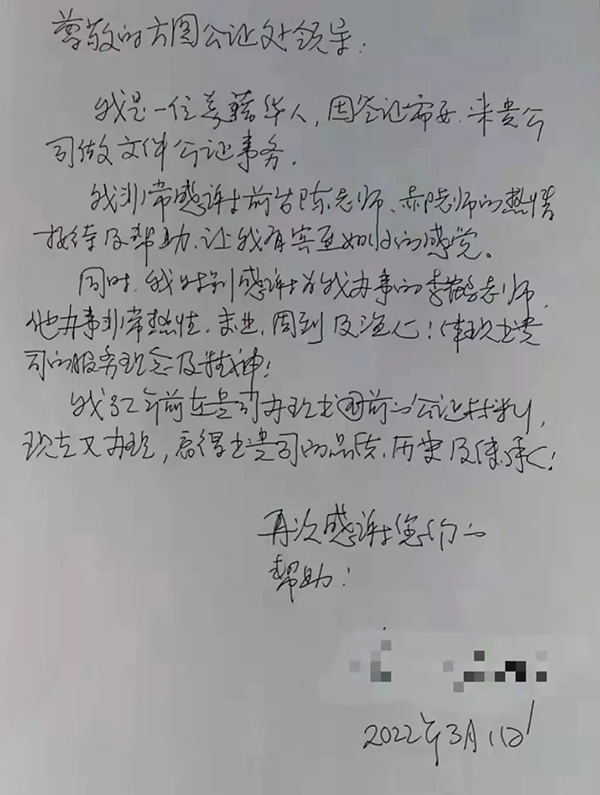 尊敬的方圆公证处领导:
我是一位美籍华人,因签证需要.来贵公
司做文件公证事务.
我非常感谢前台陈老师、郝老师的热情
接待及帮助,让我有宾至如归的感觉。
同时.我特别感谢为我办事的李鹤老师.
他办事非常热情.专业.周到及注心!体现出贵
司的服务理念及精神!
我32年前在贵司办理出国前的公证材料,
现在又办理,看得出贵司的品质.历史及传承!
再次感谢您们的
帮助!
2022年3月1日